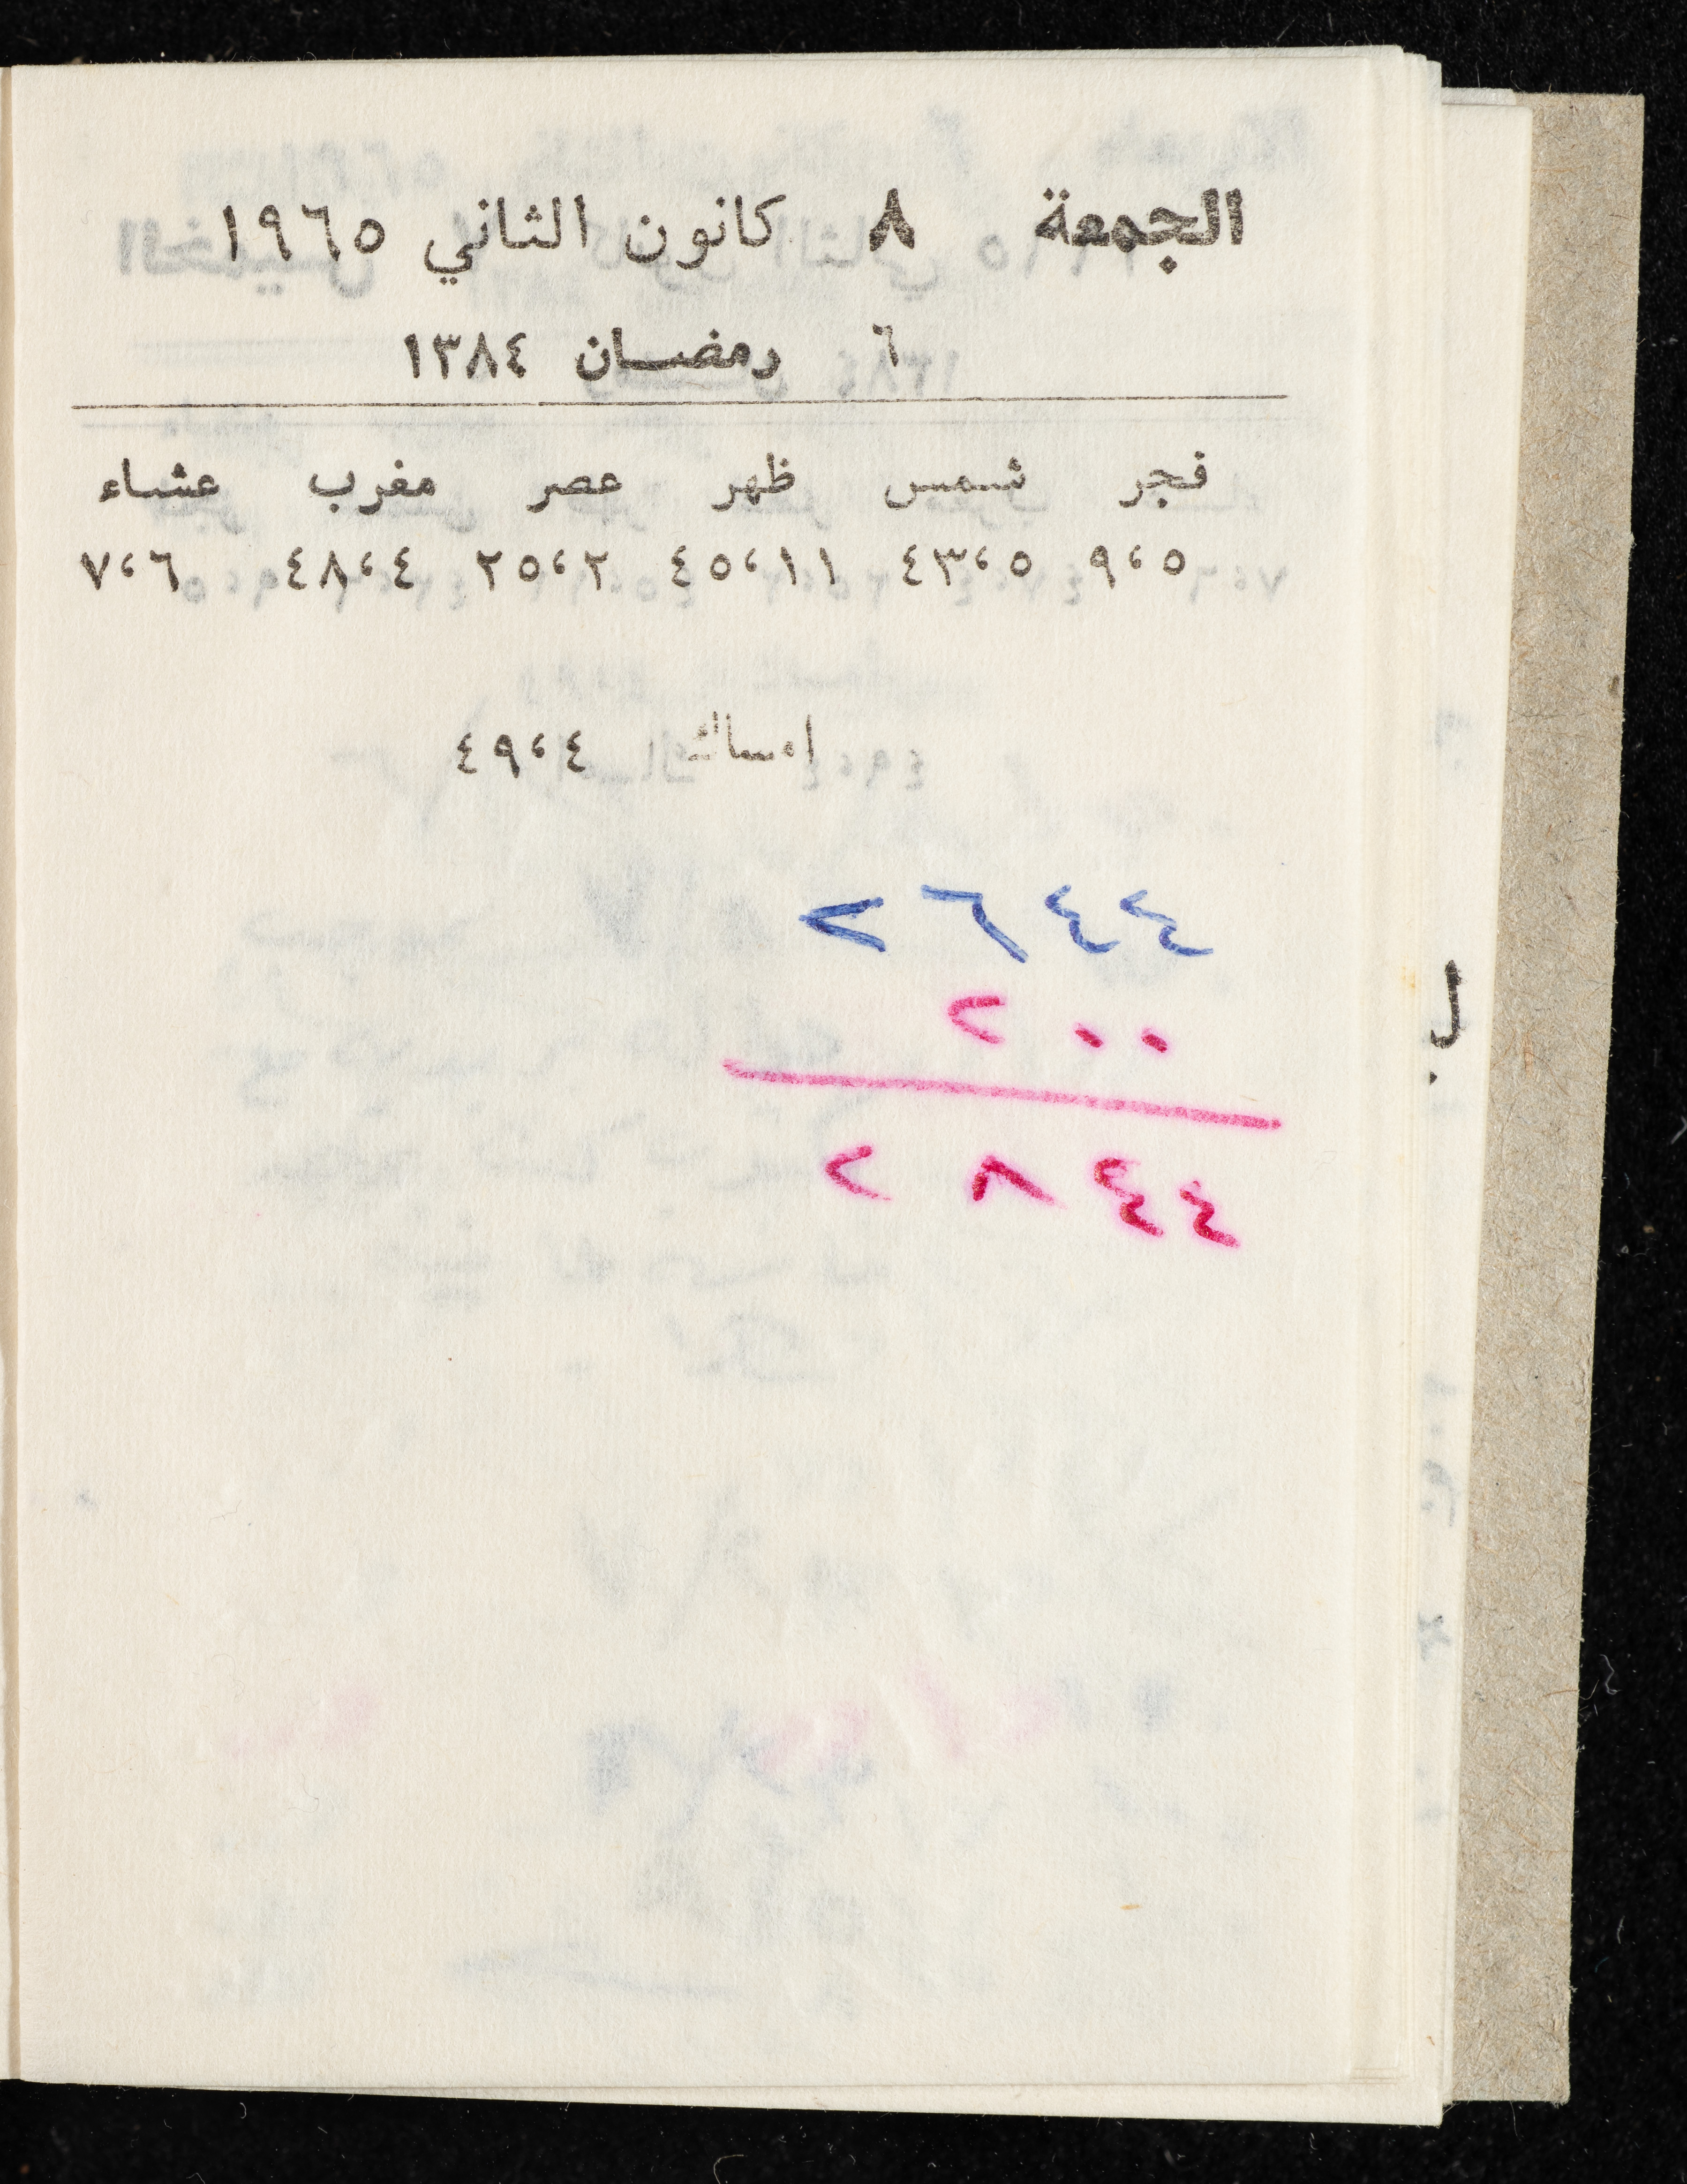 الجمعة ٨ كانون الثاني ١٩٦٥
٦ رمضان ١٣٨٤
فجر شمس ظهر عصر مغرب عشاء
٩،٥ ٤٣،٥ ٤٥،١١ ٢٥،٢ ٤٨،٤ ٧،٦
امساك ٤٩،٤
٢٦٤٤
٢٠٠
٢٨٤٤